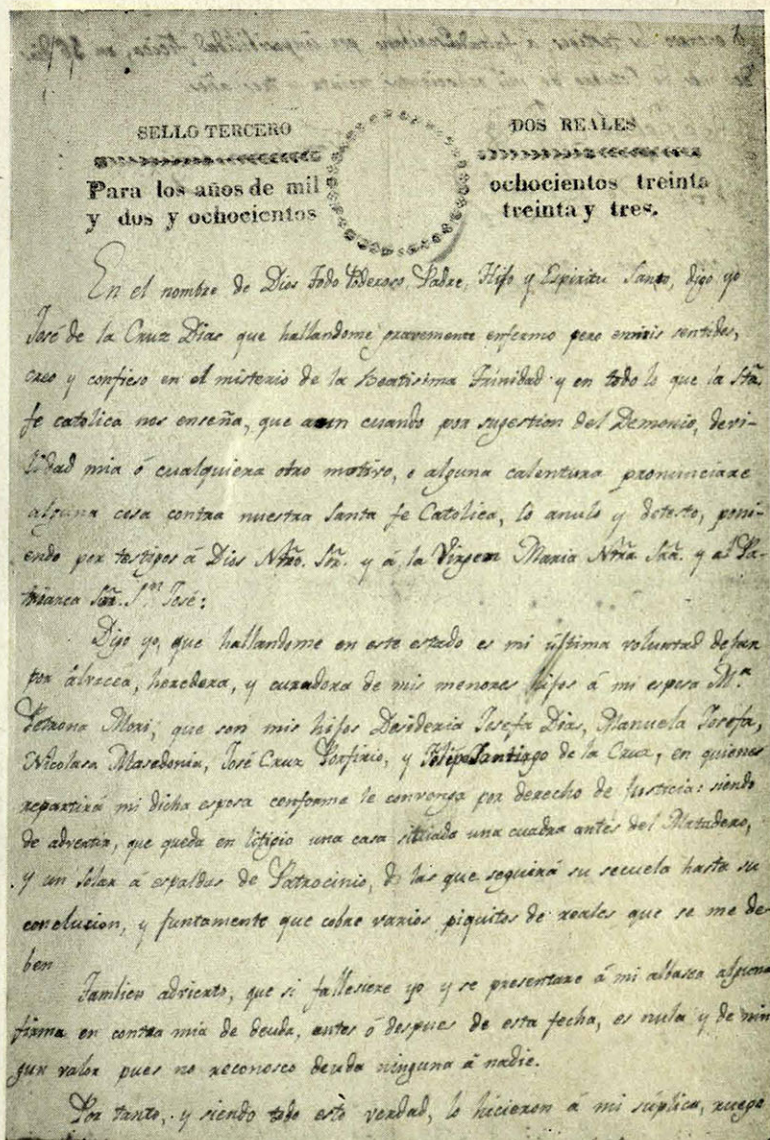 SELLO TERCERO
DOS REALES
Para los años de mil
ochocientos treinta
y dos y ochocientos
treinta y tres.
En el nombre de Dios Todo Poderoso, Padre, Hijo y Espiritu Santo, digo yo
José de la Cruz Dias que hallandome gravemente enfermo pero en mis sentidos,
creo y confieso en el misterio de la Beatisima Trinidad y en todo lo que la Sta.
fe catolica nos enseña, que aun cuando por sugestion del Demonio, devi-
lidad mia ó cualquiera otro motivo, o alguna calentura pronunciare
alguna cosa contra nuestra Santa fe Catolica, lo anulo y detesto, poni-
endo por testigos á Dios Ntro. Sor. y á la Virgen Maria Ntra Sra. y al Pa-
triarca Sor. Sn. José:
Digo yo, que hallandome en este estado es mi última voluntad dejar
por alvacea, heredera, y curadora de mis menores hijos á mi esposa Ma.
Petrona Mori, que son mis hijos Desideria Josefa Dias, Manuela Josefa,
Nicolasa Masedonia, José Cruz Porfirio, y Felipe Santiago de la Cruz, en quienes
repartirá mi dicha esposa conforme le convenga por derecho de Justicia: siendo
de advertir, que queda en litigio una casa situada una cuadra antes del Matadero,
y un Solar á espaldas de Patrocinio, de las que seguirá su secuela hasta su
conclusion, y juntamente que cobre varios piquitos de reales que se me de-
ben
Tambien advierto, que si falleciere yo y se presentare á mi albacea alguna
firma en contra mia de deuda, antes ó despues de esta fecha, es nula y de nin
gun valor pues no reconosco deuda ninguna á nadie.
Por tanto, y siendo todo esto verdad, lo hicieron á mi súplica, ruego